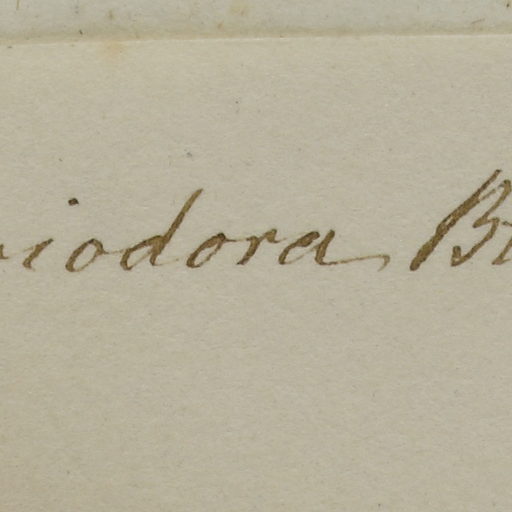 iodora B